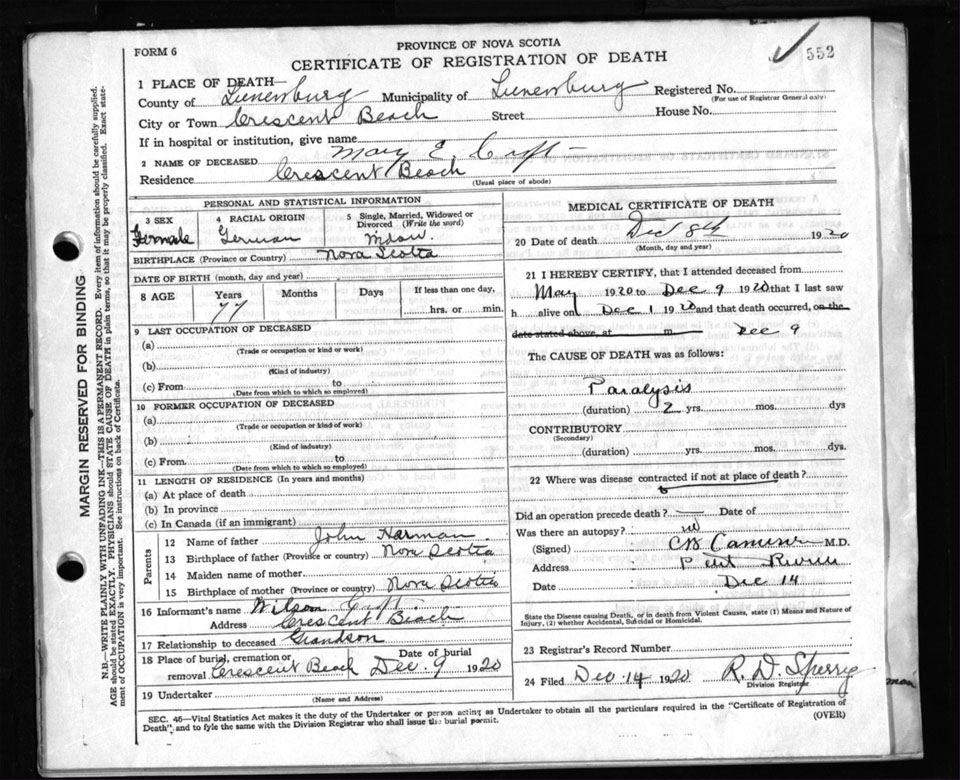 FORM 6
PROVINCE OF NOVA SCOTIA
CERTIFICATE OF REGISTRATION OF DEATH
552
1 PLACE OF DEATH—
County of Lunenburg Municipality of Lunenburg Registered No.
(For use of Registrar General only)
City or Town Crescent Beach Street House No.
If in hospital or institution, give name
2 NAME OF DECEASED Mary E.
Residence Crescent Beach
(Usual place of abode)
PERSONAL AND STATISTICAL INFORMATION
3 SEX 4 RACIAL ORIGIN 5 Single, Married, Widowed or Divorced (Write the word)
Female German Widow.
BIRTHPLACE (Province or Country) Nova Scotia
DATE OF BIRTH (month, day and year)
8 AGE Years Months Days If less than one day,
77 hrs. or min.
9 LAST OCCUPATION OF DECEASED
(a)
(Trade or occupation or kind or work)
(b)
(Kind of industry)
(c) From to
(Date from which to which so employed)
10 FORMER OCCUPATION OF DECEASED
(a)
(Trade or occupation or kind of work)
(b)
(Kind of industry)
(c) From to
(Date from which to which so employed)
11 LENGTH OF RESIDENCE (In years and months)
(a) At place of death
(b) In province
(c) In Canada (if an immigrant)
Parents
12 Name of father John Harman
13 Birthplace of father (Province or country) Nova Scotia
14 Maiden name of mother
15 Birthplace of mother (Province or country) Nova Scotia
16 Informant's name Wilson
Address Crescent Beach
17 Relationship to deceased Grandson
18 Place of burial, cremation or removal Crescent Beach Date of burial Dec. 9 1920
19 Undertaker
(Name and Address)
MEDICAL CERTIFICATE OF DEATH
20 Date of death Dec 8th 1920
(Month, day and year)
21 I HEREBY CERTIFY, that I attended deceased from
May 1920 to Dec 9 1920 that I last saw
h alive on Dec 1 1920 and that death occurred, on the
date stated above, at m Dec 9
The CAUSE OF DEATH was as follows:
Paralysis
(duration) 2 yrs. mos. dys
CONTRIBUTORY
(Secondary)
(duration) yrs. mos. dys.
22 Where was disease contracted if not at place of death?
Did an operation precede death? — Date of
Was there an autopsy? no
(Signed) M.D.
Address
Date Dec 14
State the Disease causing Death, or in death from Violent Causes, state (1) Means and Nature of
Injury, (2) whether Accidental, Suicidal or Homicidal.
23 Registrar's Record Number
24 Filed Dec 14 1920 R. D. Sperry
Division Registrar
SEC. 46—Vital Statistics Act makes it the duty of the Undertaker or person acting as Undertaker to obtain all the particulars required in the "Certificate of Registration of
Death", and to fyle the same with the Division Registrar who shall issue the burial permit.
(OVER)
MARGIN RESERVED FOR BINDING
N.B.—WRITE PLAINLY WITH UNFADING INK—THIS IS A PERMANENT RECORD. Every item of information should be carefully supplied.
AGE should be stated EXACTLY. PHYSICIANS should STATE CAUSE OF DEATH in plain terms, so that it may be properly classified. Exact state-
ment of OCCUPATION is very important. See instructions on back of Certificate.